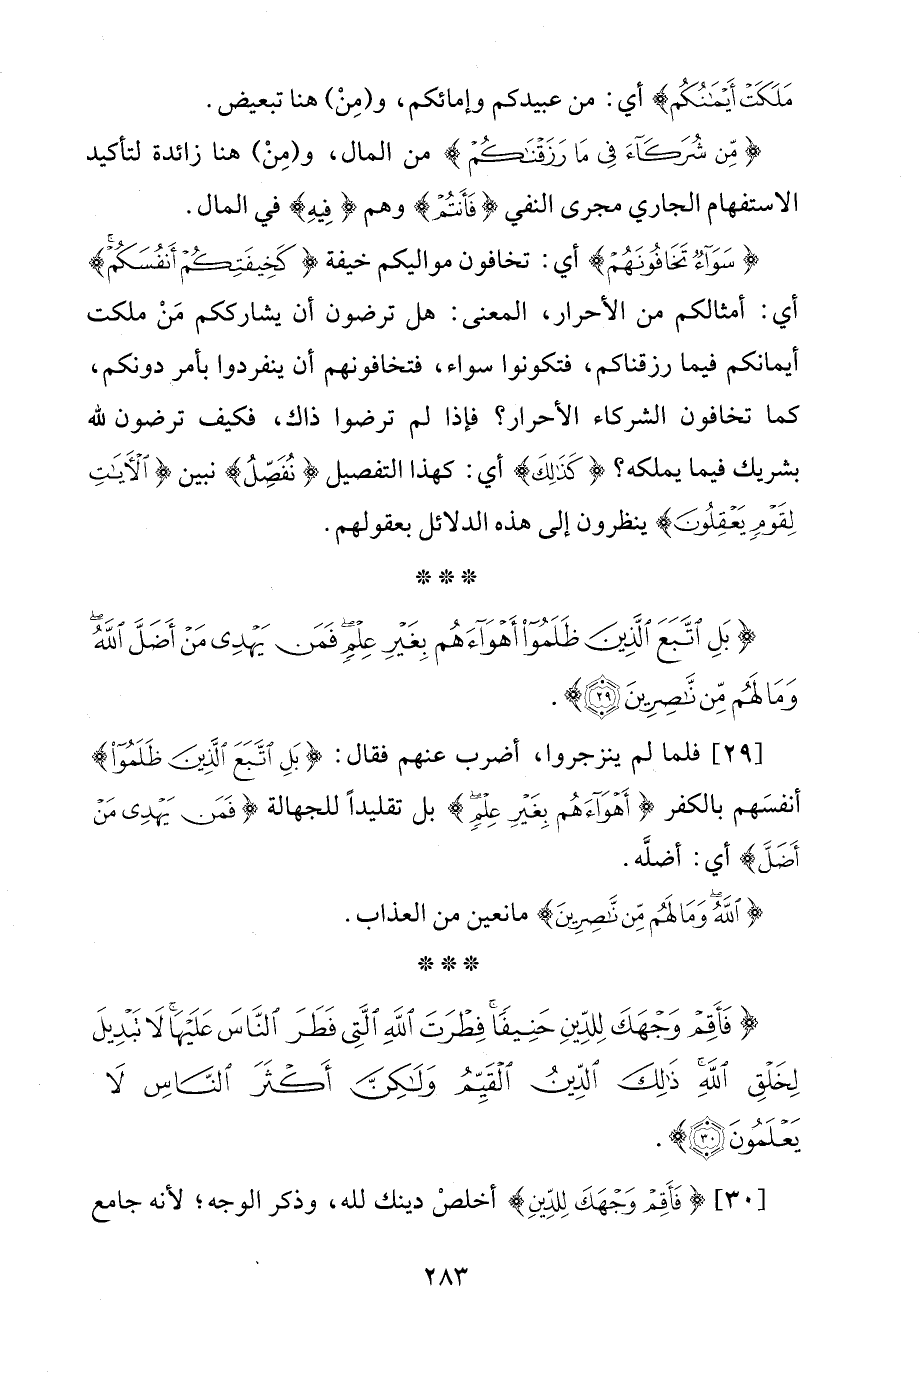 مَلَكَتْ أَيْمَٰنُكُم﴾ أي: من عبيدكم وإمائكم، و(مِنْ) هنا تبعيض.
﴿مِّن شُرَكَآءَ فِى مَا رَزَقْنَٰكُمْ﴾ من المال، و(مِنْ) هنا زائدة لتأكيد
الاستفهام الجاري مجرى النفي ﴿فَأَنتُمْ﴾ وهم ﴿فِيهِ﴾ في المال.
﴿سَوَآءٌ تَخَافُونَهُمْ﴾ أي: تخافون مواليكم خيفة ﴿كَخِيفَتِكُمْ أَنفُسَكُمْ ۚ﴾
أي: أمثالكم من الأحرار، المعنى: هل ترضون أن يشارككم مَنْ ملكت
أيمانكم فيما رزقناكم، فتكونوا سواء، فتخافونهم أن ينفردوا بأمر دونكم،
كما تخافون الشركاء الأحرار؟ فإذا لم ترضوا ذاك، فكيف ترضون لله
بشريك فيما يملكه؟ ﴿كَذَٰلِكَ﴾ أي: كهذا التفصيل ﴿نُفَصِّلُ﴾ نبين ﴿ٱلْأٓيَٰتِ
لِقَوْمٍ يَعْقِلُونَ﴾ ينظرون إلى هذه الدلائل بعقولهم.
* * *
﴿بَلِ ٱتَّبَعَ ٱلَّذِينَ ظَلَمُوٓا۟ أَهْوَآءَهُم بِغَيْرِ عِلْمٍ ۖ فَمَن يَهْدِى مَنْ أَضَلَّ ٱللَّهُ ۖ
وَمَا لَهُم مِّن نَّٰصِرِينَ ٢٩﴾.
[٢٩] فلما لم ينزجروا، أضرب عنهم فقال: ﴿بَلِ ٱتَّبَعَ ٱلَّذِينَ ظَلَمُوٓا۟﴾
أنفسَهم بالكفر ﴿أَهْوَآءَهُم بِغَيْرِ عِلْمٍ ۖ﴾ بل تقليداً للجهالة ﴿فَمَن يَهْدِى مَنْ
أَضَلَّ﴾ أي: أضلَّه.
﴿ٱللَّهُ ۖ وَمَا لَهُم مِّن نَّٰصِرِينَ﴾ مانعين من العذاب.
* * *
﴿فَأَقِمْ وَجْهَكَ لِلدِّينِ حَنِيفًا ۚ فِطْرَتَ ٱللَّهِ ٱلَّتِى فَطَرَ ٱلنَّاسَ عَلَيْهَا ۚ لَا تَبْدِيلَ
لِخَلْقِ ٱللَّهِ ۚ ذَٰلِكَ ٱلدِّينُ ٱلْقَيِّمُ وَلَٰكِنَّ أَكْثَرَ ٱلنَّاسِ لَا
يَعْلَمُونَ ٣٠﴾.
[٣٠] ﴿فَأَقِمْ وَجْهَكَ لِلدِّينِ﴾ أخلصْ دينك لله، وذكر الوجه؛ لأنه جامع
٢٨٣